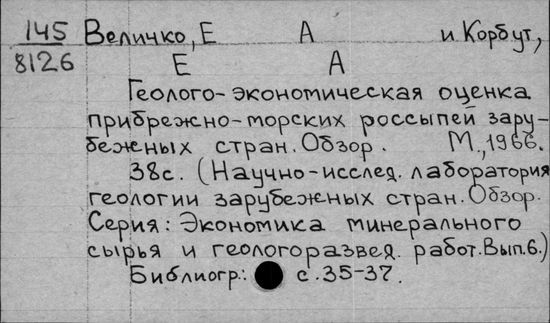 145 Величко, Е А и Корбут,
8126 Е А
Геолого-экономическая оценка
прибрежно-морских россыпей зару-
бежных стран. Обзор. М., 1966.
38с. (Научно-исслед. лаборатория
геологии зарубежных стран. Обзор.
Серия: Экономика минерального
сырья и геологоразвед. работ. Вып.6.)
Библиогр.: с. 35-37.